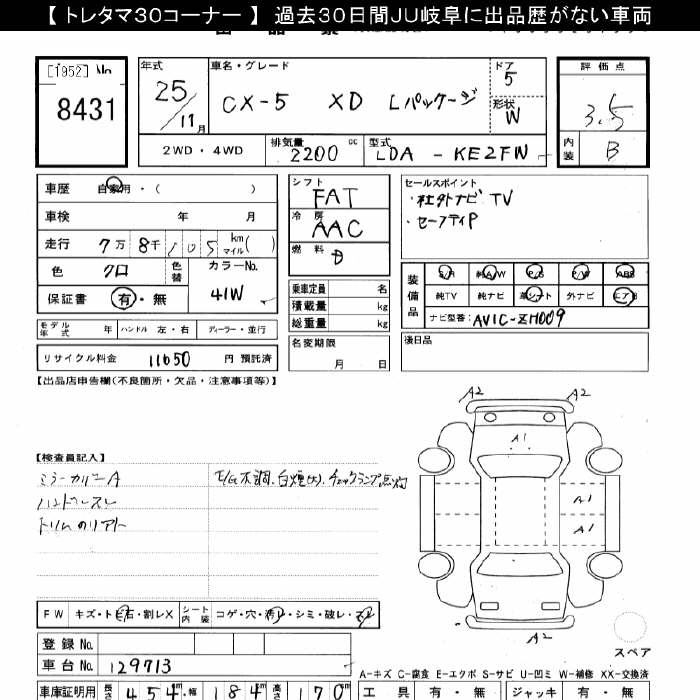 【 トレタマ３０コーナー 】 過去３０日間ＪＵ岐阜に出品歴がない車両
[1952] No
8431
年式
25/11月
車名・グレード
CX-5 XD Lパッケージ
ドア
5
形状
W
評価点
3.5
内装 B
2WD・4WD
排気量 2200 cc
型式 LDA - KE2FW
車歴 自家用・( )
車検 年 月
走行 7万 8千 105 km マイル( )
色 クロ 色替 カラーNo. 41W
保証書 有・無
モデル年式 年 ハンドル 左・右 ディーラー・並行
リサイクル料金 11650 円 預託済
シフト FAT
冷房 AAC
燃料 D
乗車定員 名
積載量 kg
総重量 kg
名変期限
月 日
セールスポイント
・社外ナビ TV
・セーフティP
装備品
S/R 純A/W P/S P/W ABS
純TV 純ナビ 革シート 外ナビ エアB
ナビ型番: AVIC-ZH009
後日品
【出品店申告欄(不良箇所・欠品・注意事項等)】
【検査員記入】
ミラーカバーA
ハンドルスレ
E/G不調、白煙(大)、チェックランプ点灯
A2 A2
A1
A1
A1
A2
スペア
FW キズ・ト石・割レX シート内装 コゲ・穴・汚レ・シミ・破レ・スレ
登録 No.
車台 No. 129713
車庫証明用 長さ 454cm 幅 184cm 高さ 170cm
A-キズ C-腐食 E-エクボ S-サビ U-凹ミ W-補修 XX-交換済
工具 有・無 ジャッキ 有・無